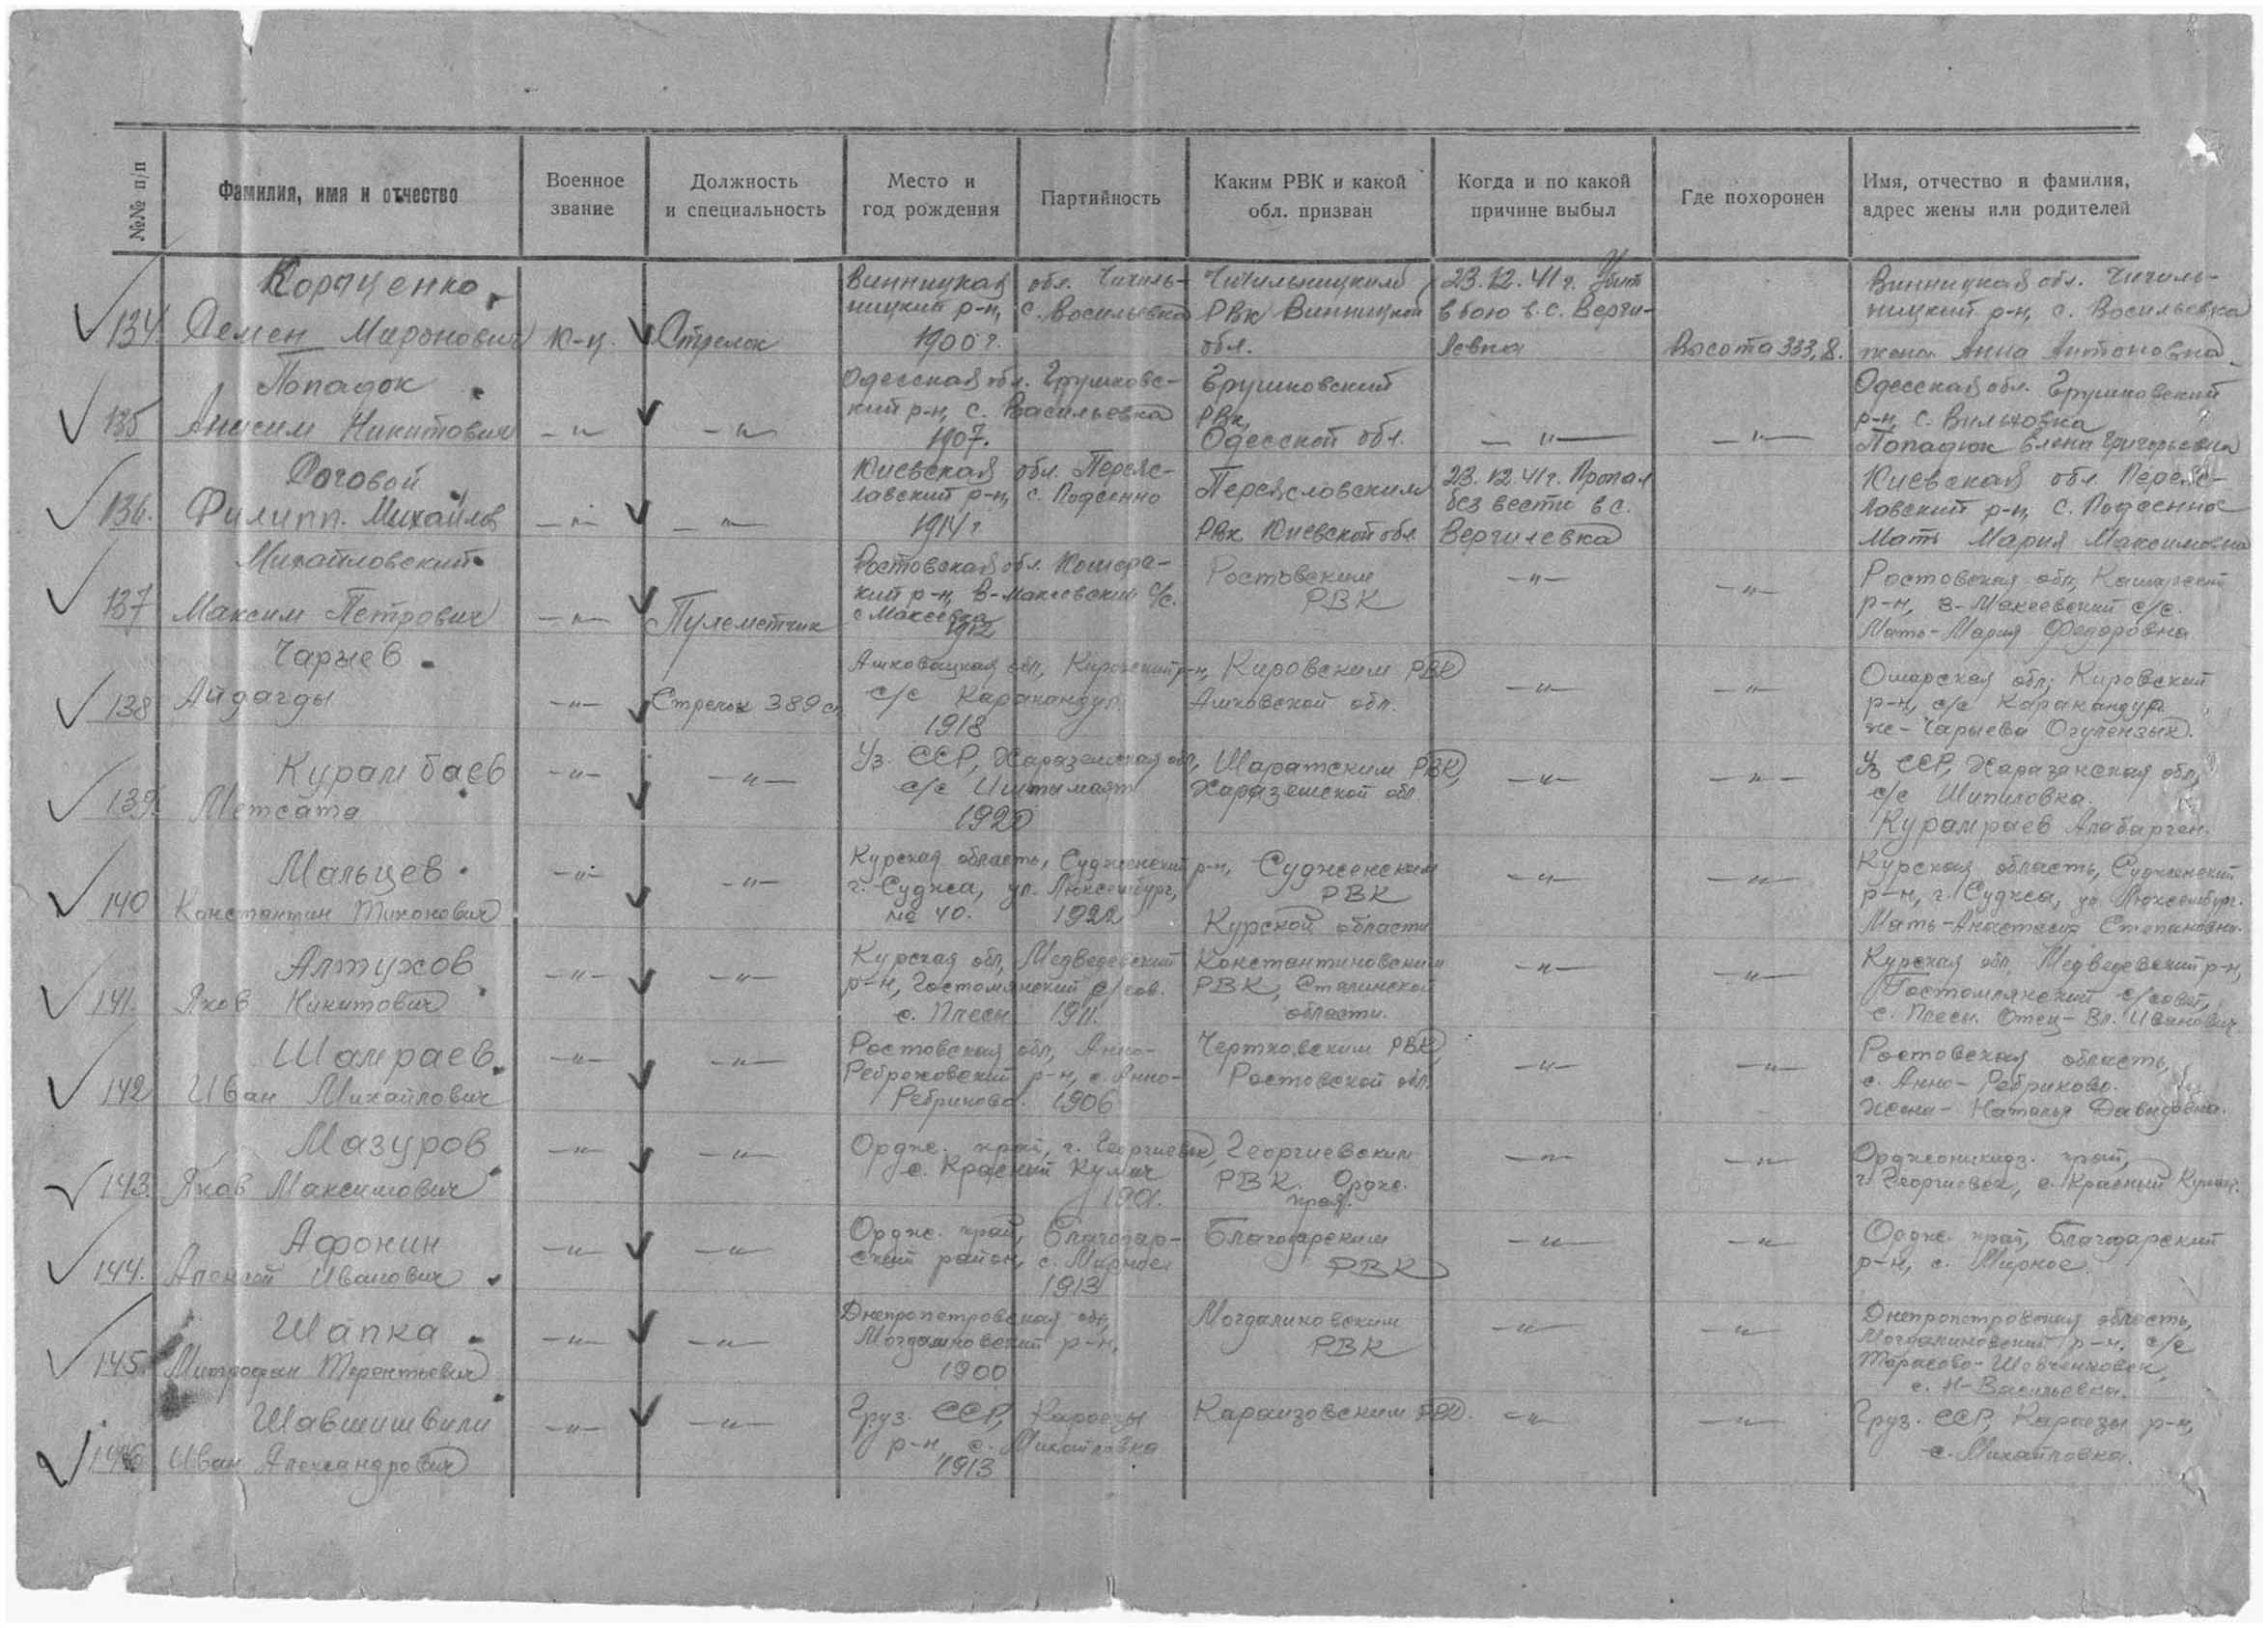 №№ п/п
Фамилия, имя и отчество
Военное
звание
Должность
и специальность
Место и
год рождения
Партийность
Каким РВК и какой
обл. призван
Когда и по какой
причине выбыл
Где похоронен
Имя, отчество и фамилия,
адрес жены или родителей
134.
Семен Миронович
к-ц.
Стрелок
Винницкая обл. Чичиль-
ницкий р-н, с. Васильевка
1900 г.
Чичильницким
РВК Винницкой
обл.
23.12.41 г. Убит
в бою в с. Верги-
левка
Высота 333,8.
Винницкая обл. Чичиль-
ницкий р-н, с. Васильевка
жена Анна Антоновна
135
Попадюк
Анисим Никитович
-"-
-"-
Одесская обл. Грушковс-
кий р-н, с. Васильевка
1907.
Грушковский
РВК,
Одесской обл.
-"-
-"-
Одесская обл. Грушковский
р-н, с. Вильховка
Попадюк Елена Григорьевна
136.
Роговой
Филипп. Михайлов
-"-
-"-
Киевская обл. Переяс-
лавский р-н, с. Подсенно
1914 г
Переясловским
РВК Киевской обл.
23.12.41 г. Пропал
без вести в с.
Вергилевка
Киевская обл. Переяс-
лавский р-н, с. Подсенное
Мать Мария Максимовна
137
Михайловский
Максим Петрович
-"-
Пулеметчик
Ростовская обл. Кошарс-
кий р-н, В-Макеевский с/с.
с Макеевка
1912
Ростовским
РВК
-"-
-"-
Ростовская обл, Кашарский
р-н, В-Макеевский с/с.
Мать-Мария Федоровна
138
Чарыев
Айдагды
-"-
Стрелок 389 сп
Кировский р-н,
с/с Каракандул
1918
Кировским РВК
обл.
-"-
-"-
обл, Кировский
р-н, с/с
же-Чарыева
139.
Курамбаев
Метсата
-"-
-"-
Уз. ССР, Харазешская обл,
с/с
1920
Шаратским РВК,
Харазешской обл.
-"-
-"-
Уз ССР, Харазанская обл,
с/с Шипиловка.
140
Мальцев
Константин Тихонович
-"-
-"-
Курская область, Судженский р-н,
г. Суджа, ул. Люксембург,
№ 40. 1922
Судженским
РВК
Курской области
-"-
-"-
Курская область, Судженский
р-н, г. Суджа, ул Люксембург.
Мать-Анастасия Степановна.
141.
Алтухов
Яков Никитович
-"-
-"-
Курская обл, Медведевский
р-н, Гостомлянский с/сов.
с. Плесы 1911.
Константиновским
РВК, Сталинской
области.
-"-
-"-
Курская обл, Медведевский р-н,
Гостомлянский с/совет,
с. Плесы. Отец-Вл. Иванович
142
Шамраев
Иван Михайлович
-"-
-"-
Ростовская обл, Анно-
р-н, с. Анно-
Ребриково. 1906
Чертковским РВК
Ростовской обл.
-"-
-"-
Ростовская область,
с. Анно-Ребриково.
Жена-Наталья Давыдовна.
143.
Мазуров
Яков Максимович
-"-
-"-
Ордже. край, г. Георгиевск,
с. Красный Кумач
1901.
Георгиевским
РВК. Ордже.
края.
-"-
-"-
Орджоникидз. край,
г Георгиевск, с. Красный
144.
Афонин
Алексей Иванович
-"-
-"-
Ордже. край, Благодар-
ский район, с. Мирное
1913
Благодарским
РВК
-"-
-"-
Ордже. край, Благодарский
р-н, с. Мирное.
145.
Шапка
Митрофан Терентьевич
-"-
-"-
Днепропетровская обл,
Могдалиновский р-н,
1900
Могдалиновским
РВК
-"-
-"-
Днепропетровская область,
Могдалиновский р-н. с/с
Тарасово-Шевченковск,
с. Н-Васильевка.
146
Шавшишвили
Иван Александрович
-"-
-"-
Груз. ССР, Караезы
р-н, с. Михайловка
1913
Караизовским РВК.
-"-
-"-
Груз. ССР, Караезы р-н,
с. Михайловка.